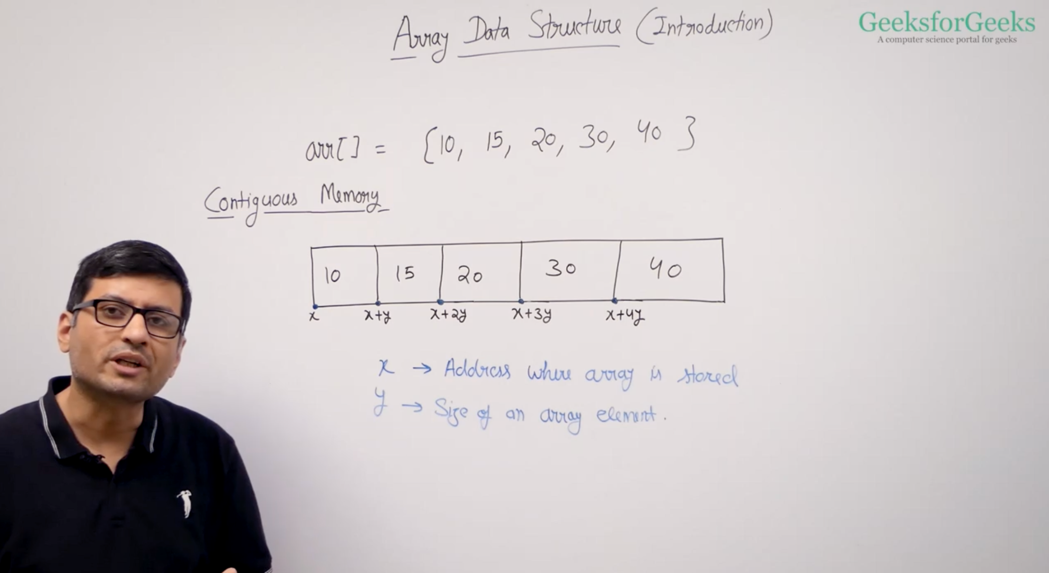 Array Data Structure (Introduction)
GeeksforGeeks
A computer science portal for geeks
arr[] = {10, 15, 20, 30, 40 }
Contiguous Memory
10 15 20 30 40
x x+y x+2y x+3y x+4y
x → Address where array is stored
y → Size of an array element.